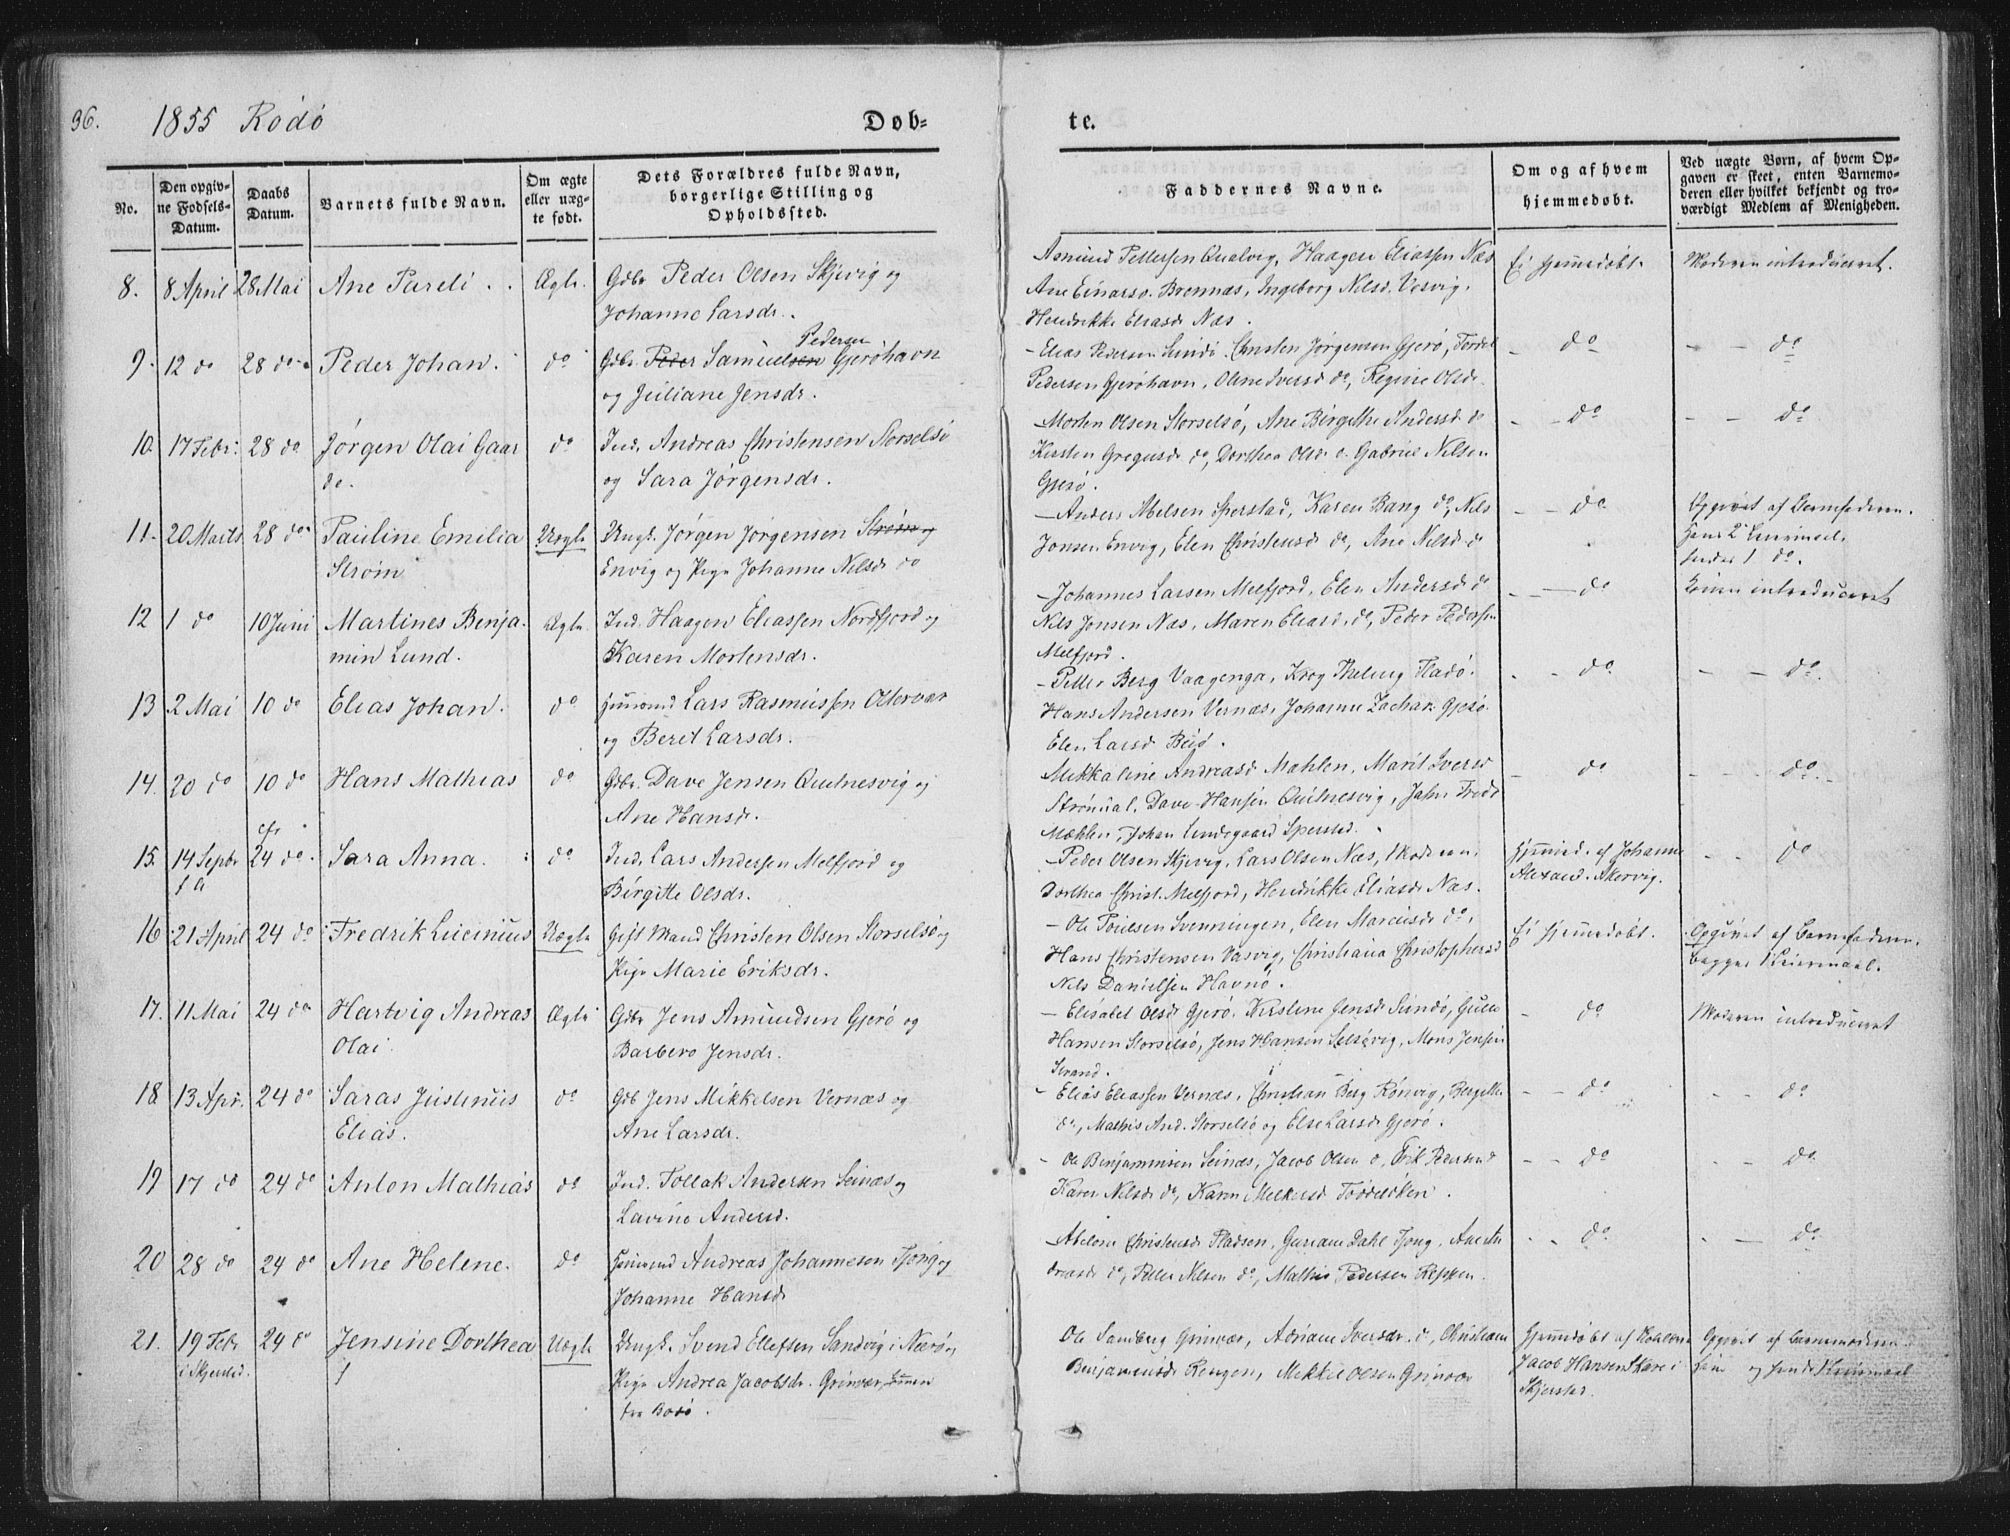 96. 1855 Rödö Døb- te.
No. Den opgiv-
ne Fødsels-
Datum. Daabs
Datum. Barnets fulde Navn. Om ægte
eller uæg-
te født. Dets Forældres fulde Navn,
borgerlige Stilling og
Opholdssted. Faddernes Navne. Om og af hvem
hjemmedøbt. Ved uægte Børn, af hvem Op-
gaven er skeet, enten Barnemo-
deren eller hvilket bekjendt og tro-
værdigt Medlem af Menigheden.
8. 8 April 28 Mai Ane Pareli Ægte. Gdbr Peder Olsen Skjevig og
Johanne Larsdr.
Asmund Pettersen Qualvig, Haagen Eliassen Næs
Ane Einarsd. Brennæs, Ingeborg Nilsd. Vesvig,
Hendrikke Eliasd Næs.
Ei hjemmedøbt. Moderen introduceret.
9. 12 do 28 do Peder Johan. do Gdbr. Peder Samuelsen Pedersen Gjerøhavn
og Juliane Jensdr.
Elias Pedersen Sundö, Christen Jørgensen Gjerø,
Pedersen Gjerøhavn, Oline Iversd do, Regine Olsdr.
do do
10. 17 Febr. 28 do Jörgen Olai Gaar
do. do Ind. Andreas Christensen Storselsö
og Sara Jørgensdr.
Morten Olsen Storselsö, Ane Birgethe Andersd do
Kirsten Gregusd do, Dorthea Olsd do. Gabriel Nilsen
Gjerö.
do do
11. 20 Marts 28 do Pauline Emilia
Strøm Uægte Ungk. Jörgen Jørgensen Strøm og
Envig og Pige Johanne Nilsdr do
Anders Abelsen Sperstad, Karen Bang do, Nils
Jonsen Envig, Elen Christensd do, Ane Nilsd do
do Opgivet af Barnefaderen.
Hans 2det Leiermaal,
hendes 1 do.
12 1 do 10 Juni Martines Benja-
min Lund. Ægte Ind. Haagen Eliassen Nordfjord og
Karen Mortensdr.
Johannes Larsen Melfjord, Elen Andersd do
Nils Jonsen Næs, Maren Eliasd. do, Peder Pedersen
Melfjord.
do Konen introduceret
13 2 Mai 10 do Elias Johan. do Huusmand Lars Rasmussen Oltervær
og Berit Larsdr.
Petter Berg Vaagenga, Krog Fladö.
Hans Andersen Vernæs, Johanne Zachar. Gjesö
Elen Larsd
do do.
14. 20 do 10 do Hans Mathias do Gdbr. Dave Jensen Quitnesvig og
Ane Hansdr.
Mikkaline Andreasd Mæhlen, Marit Iversd
Strömdal, Dave Hansen Quitnesvig,
Mæhlen, Johan Lundegaard Sperstad.
do do.
15. 14 Septbr
f a 24 do. Sara Anna. do Ind. Lars Andersen Melfjord og
Birgitte Olsdr.
Peder Olsen Skjevig, Lars Olsen Næs, Moderen,
Dorthea Christ. Melfjord, Hendrikke Eliasd Næs.
Hjemmed. af Johanne
Alexand. Akervig. do
16 21 April 24 do Fredrik Lucinius Uægte Gift Mand Christen Olsen Storselsö og
Pige Marie Eriksdr.
Ole Poulsen Svenningen, Elen Marcusdr do,
Hans Christensen Væsvig, Christiana Christophersd
Nils Danielsen Havnö.
Ei hjemmedøbt. Opgivet af Barnefaderen.
Begges 1 Leiermaal.
17. 11 Mai 24 do Hartvig Andreas
Olai. Ægte Gdbr Jens Amundsen Gjerö og
Barbero Jensdr.
Elisabet Olsd Gjerö, Kirstine Jensd Sundö,
Hansen Storselsö, Jens Hansen Selsövig, Mons Jensen
Strand.
do Moderen introduceret
18 13 Apr. 24 do Saras Justinus
Elias. do Gdb Jens Mikkelsen Vernæs og
Ane Larsdr.
Elias Eliassen Vernæs, Christian Berg Rönvig,
do, Mathis And. Storselsö og Else Larsd Gjerö.
do do
19 17 do 24 do Anton Mathias do Ind. Tollak Andersen Seinæs og
Lavine Andersd.
Ole Benjaminsen Seinæs, Jacob Olsen do, Erik Pedersen do
Karen Nilsdr do, Karen
do do.
20 28 do 24 do Ane Helene. do Huusmand Andreas Johannesen Tjong og
Johanne Hansdr
Christensd Pladsen, Dahl Tjong,
dreasdr do, Petter Nilsen do, Mathis Pedersen Reppen.
do do
21. 19 Febr
i Skjerstad. 24 do Jensine Dorthea
f Uægte Ungk. Svend Ellefsen Sandvig i Nærö og
Pige Andrea Jacobsdr. Grinvær,
fra Bodö.
Ole Sandberg Grinvær, Adriane Iversdr. do, Christiane
Benjaminsdr Rengen, Mikkel Olsen Grinvær
Hjemmedøbt af
Jacob Hansen Skare i
Skjerstad.
Opgivet af Barnemoderen
og hendes Leiermaal